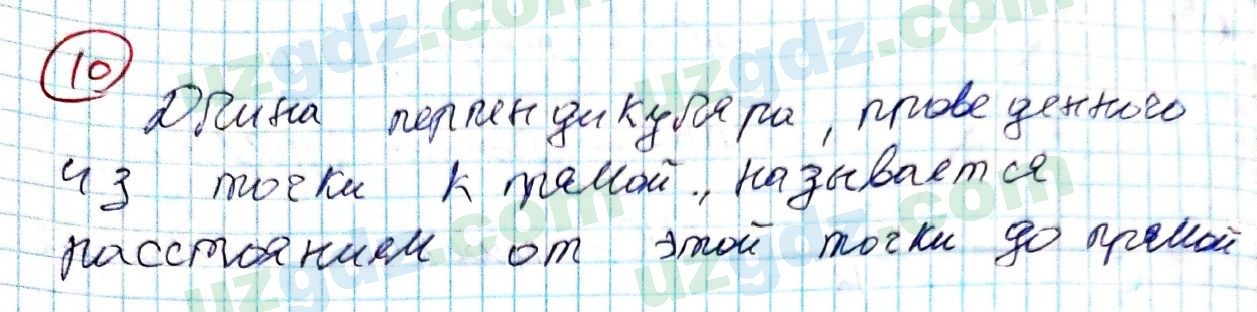 10
Длина перпендикуляра, проведенного
из точки к прямой, называется
расстоянием от этой точки до прямой
uzgdz.com uzgdz.com
uzgdz.com uzgdz.com
uzgdz.com uzgdz.com